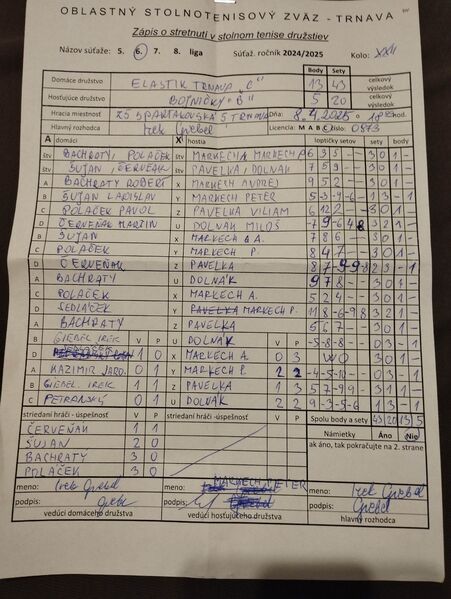 OBLASTNÝ STOLNOTENISOVÝ ZVÄZ - TRNAVA
Zápis o stretnutí v stolnom tenise družstiev
Názov súťaže: 5. 6. 7. 8. liga Súťaž. ročník 2024/2025 Kolo: XXII
Body Sety
Domáce družstvo ELASTIK TRNAVA "C" 13 43 celkový výsledok
Hosťujúce družstvo BOJNIČKY "B" 5 20 celkový výsledok
Hracia miestnosť ZŠ SPARTAKOVSKÁ 5 TRNAVA Dňa: 8.4.2025 o
Hlavný rozhodca Irek Giebel Licencia: M A B C číslo: 0873
A domáci X hostia loptičky setov sety body
štv BACHRATÝ, POLAČEK štv MARKECH A MARKECH P 6 3 5 - - 3 0 1 -
štv ŠUJAN, ČERVEŇÁK štv PAVELKA, DOLNÁK 7 5 9 - - 3 0 1 -
A BACHRATÝ RÓBERT X MARKECH ANDREJ 9 5 2 - - 3 0 1 -
B ŠUJAN LADISLAV Y MARKECH PETER 5 -3 -9 -6 - 1 3 - 1
C POLAČEK PAVOL Z PAVELKA VILIAM 6 12 2 - - 3 0 1 -
D ČERVEŇÁK MARTIN U DOLNÁK MILOŠ -7 9 -6 4 8 3 2 1 -
B ŠUJAN X MARKECH A. 7 8 6 - - 3 0 1 -
C POLAČEK Y MARKECH P. 8 4 7 - - 3 0 1 -
D ČERVEŇÁK Z PAVELKA 8 7 -9 -9 8 2 3 - 1
A BACHRATÝ U DOLNÁK 9 7 8 - - 3 0 1 -
C POLAČEK X MARKECH A. 5 2 4 - - 3 0 1 -
D SEDLÁČEK Y MARKECH P. 11 8 -6 -9 8 3 2 1 -
A BACHRATÝ Z PAVELKA 5 6 7 - - 3 0 1 -
B GIEBEL IREK V P U DOLNÁK V P -5 -8 -8 - - 0 3 - 1
D SEDLÁČEK 1 0 X MARKECH A 0 3 WO 3 0 1 -
A KAZIMÍR JARO. 1 0 Y MARKECH P. 2 2 -4 -5 -10 - - 0 3 - 1
B GIEBEL IREK 1 1 Z PAVELKA 1 3 5 7 -9 9 - 3 1 1 -
C PETRANSKÝ 0 1 U DOLNÁK 2 2 9 -3 -5 -6 - 1 3 - 1
striedaní hráči -úspešnosť V P striedaní hráči - úspešnosť V P Spolu body a sety 43 20 13 5
ČERVEŇÁK 1 1 Námietky Áno Nie
ŠUJAN 2 0 ak áno, tak pokračujte na 2. strane
BACHRATÝ 3 0
POLAČEK 3 0
meno: Irek Giebel meno: MARKECH PETER meno: Irek Giebel
podpis: Giebel podpis: podpis: Giebel
vedúci domáceho družstva vedúci hosťujúceho družstva hlavný rozhodca